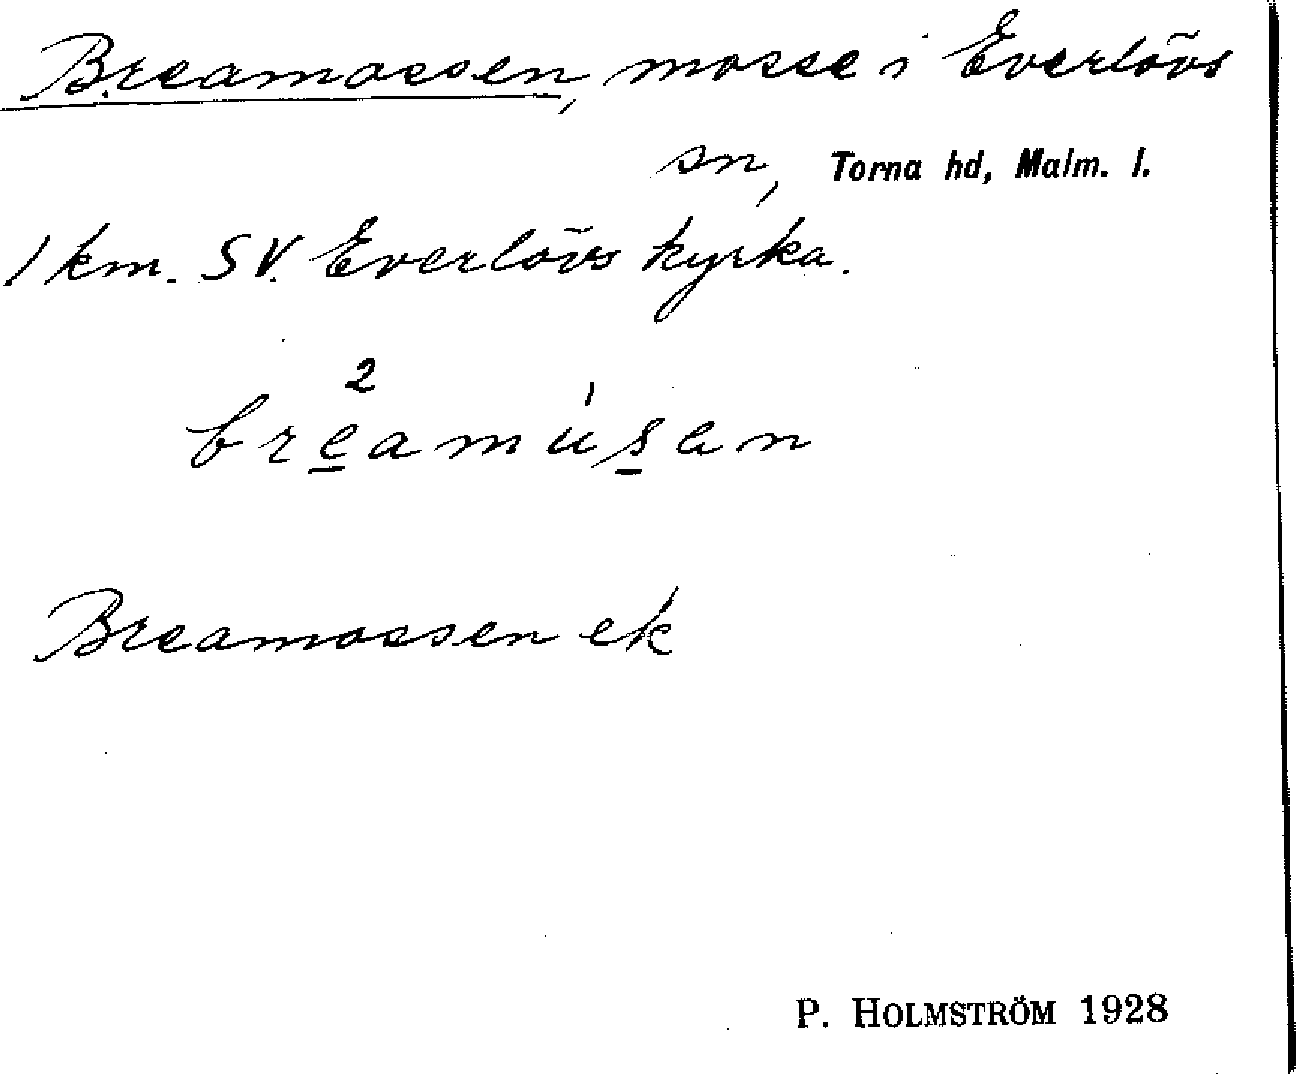 Breamossen, mosse i Everlövs
sn, Torna hd, Malm. l.
1 km. SV. Everlövs kyrka.
2
breamúsen
Breamossen ek
P. HOLMSTRÖM 1928